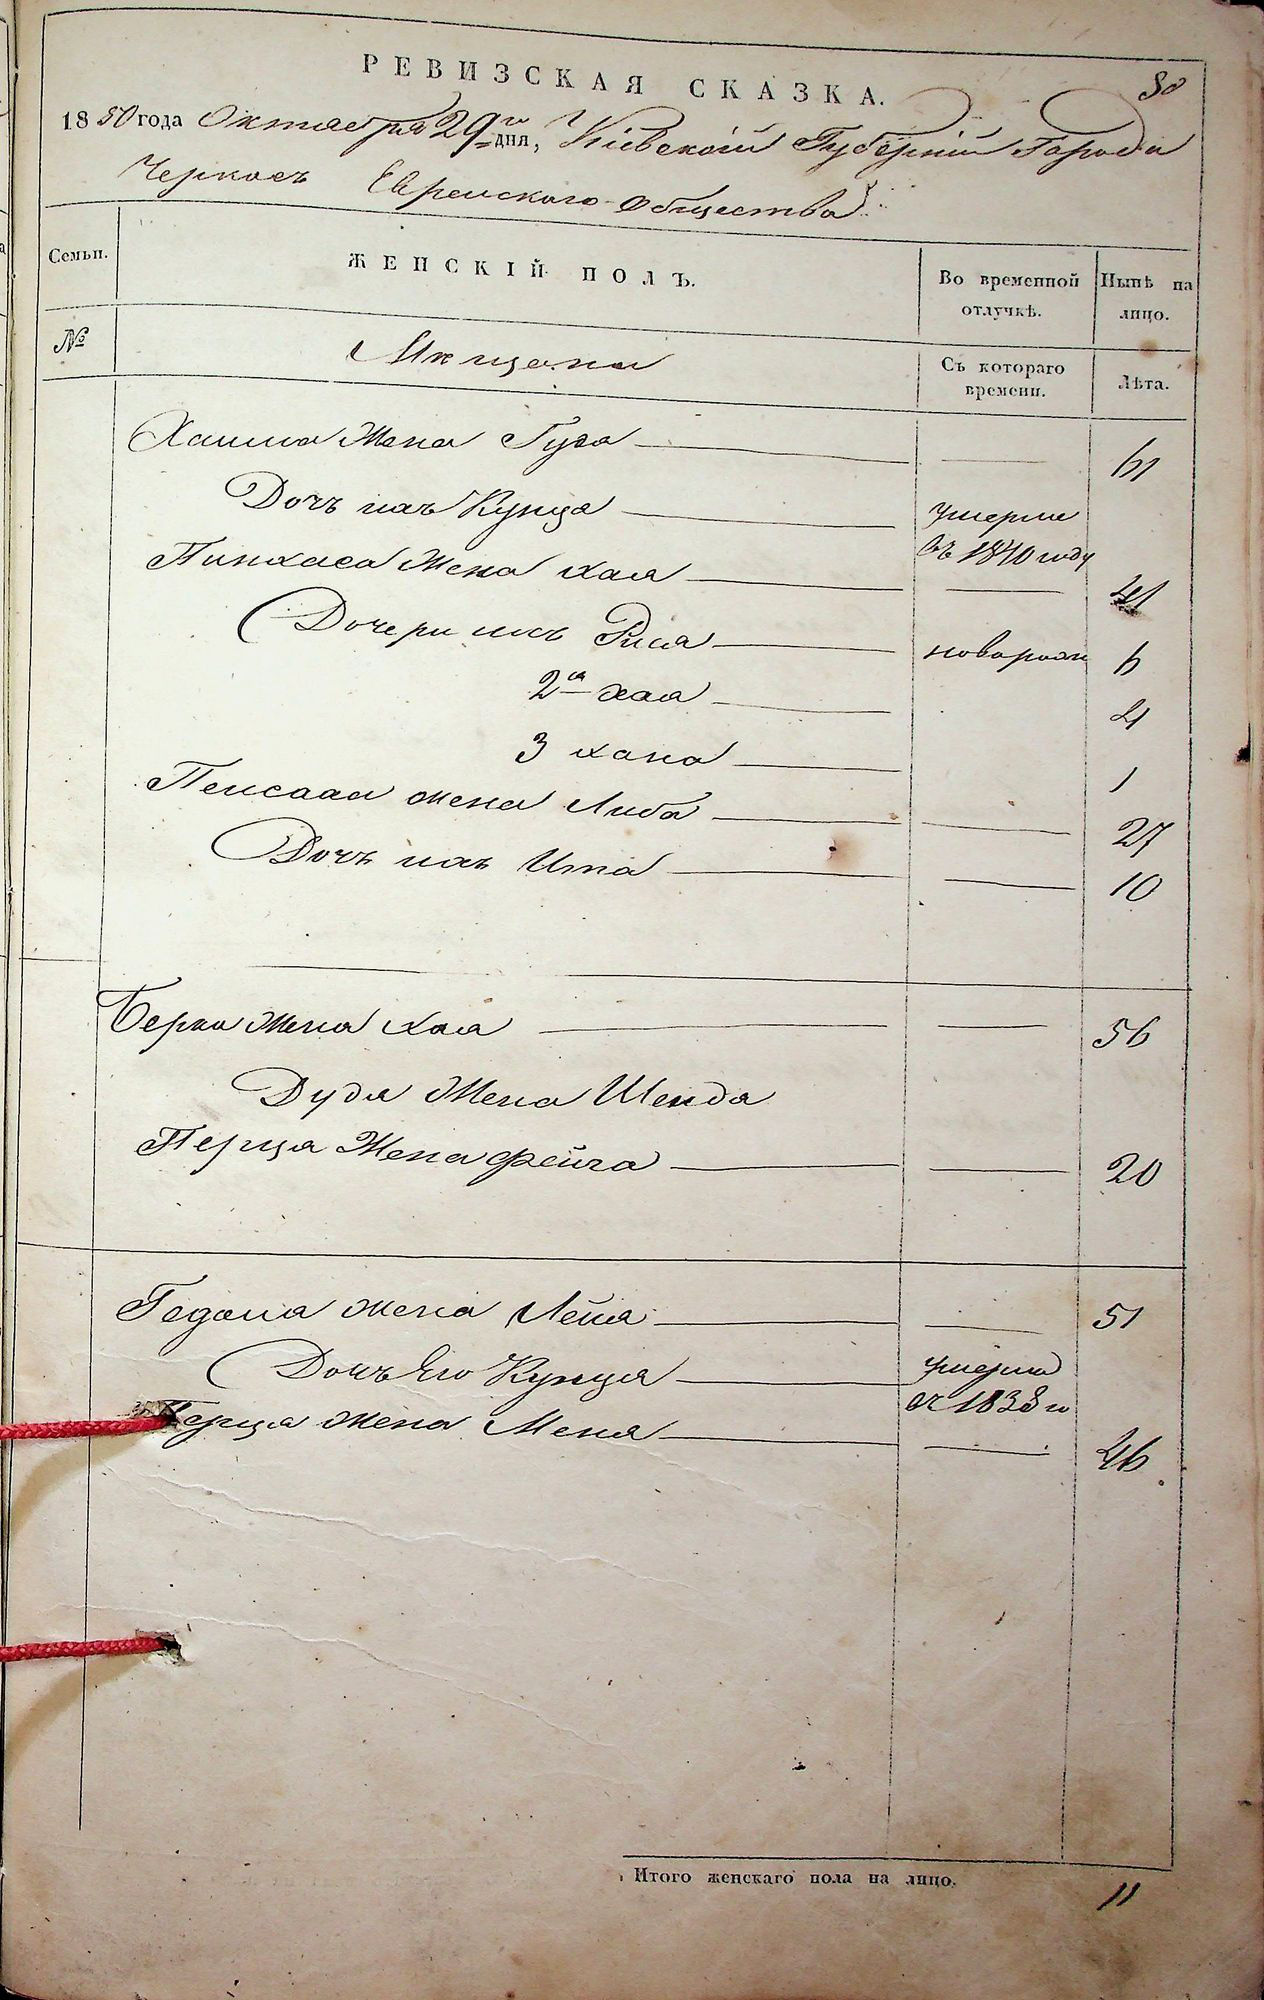 РЕВИЗСКАЯ СКАЗКА. 80
1850 года Октября 29го дня, Кіевской Губерніи Города
Черкасъ Еврейскаго Общества
Семьи. ЖЕНСКІЙ ПОЛЪ. Во временной отлучкѣ. Нынѣ на лицо.
№ Мѣщане Съ котораго времени. Лѣта.
Хаима Жена Гуда 61
Дочъ ихъ Куня умерла въ 1840 году
Пинхаса Жена Хая 41
Дочери ихъ Рися новорожд 6
2я Хая 4
3 Хана 1
Пейсаха жена Либа 27
Дочъ ихъ Ита 10
Берка Жена Хая 56
Дудя Жена Шенда
Перца Жена Фейга 20
Гедаля жена Лейя 51
Дочъ Его Куня умерла въ 1838 го
Герца жена Меня 46
Итого женскаго пола на лицо. 11